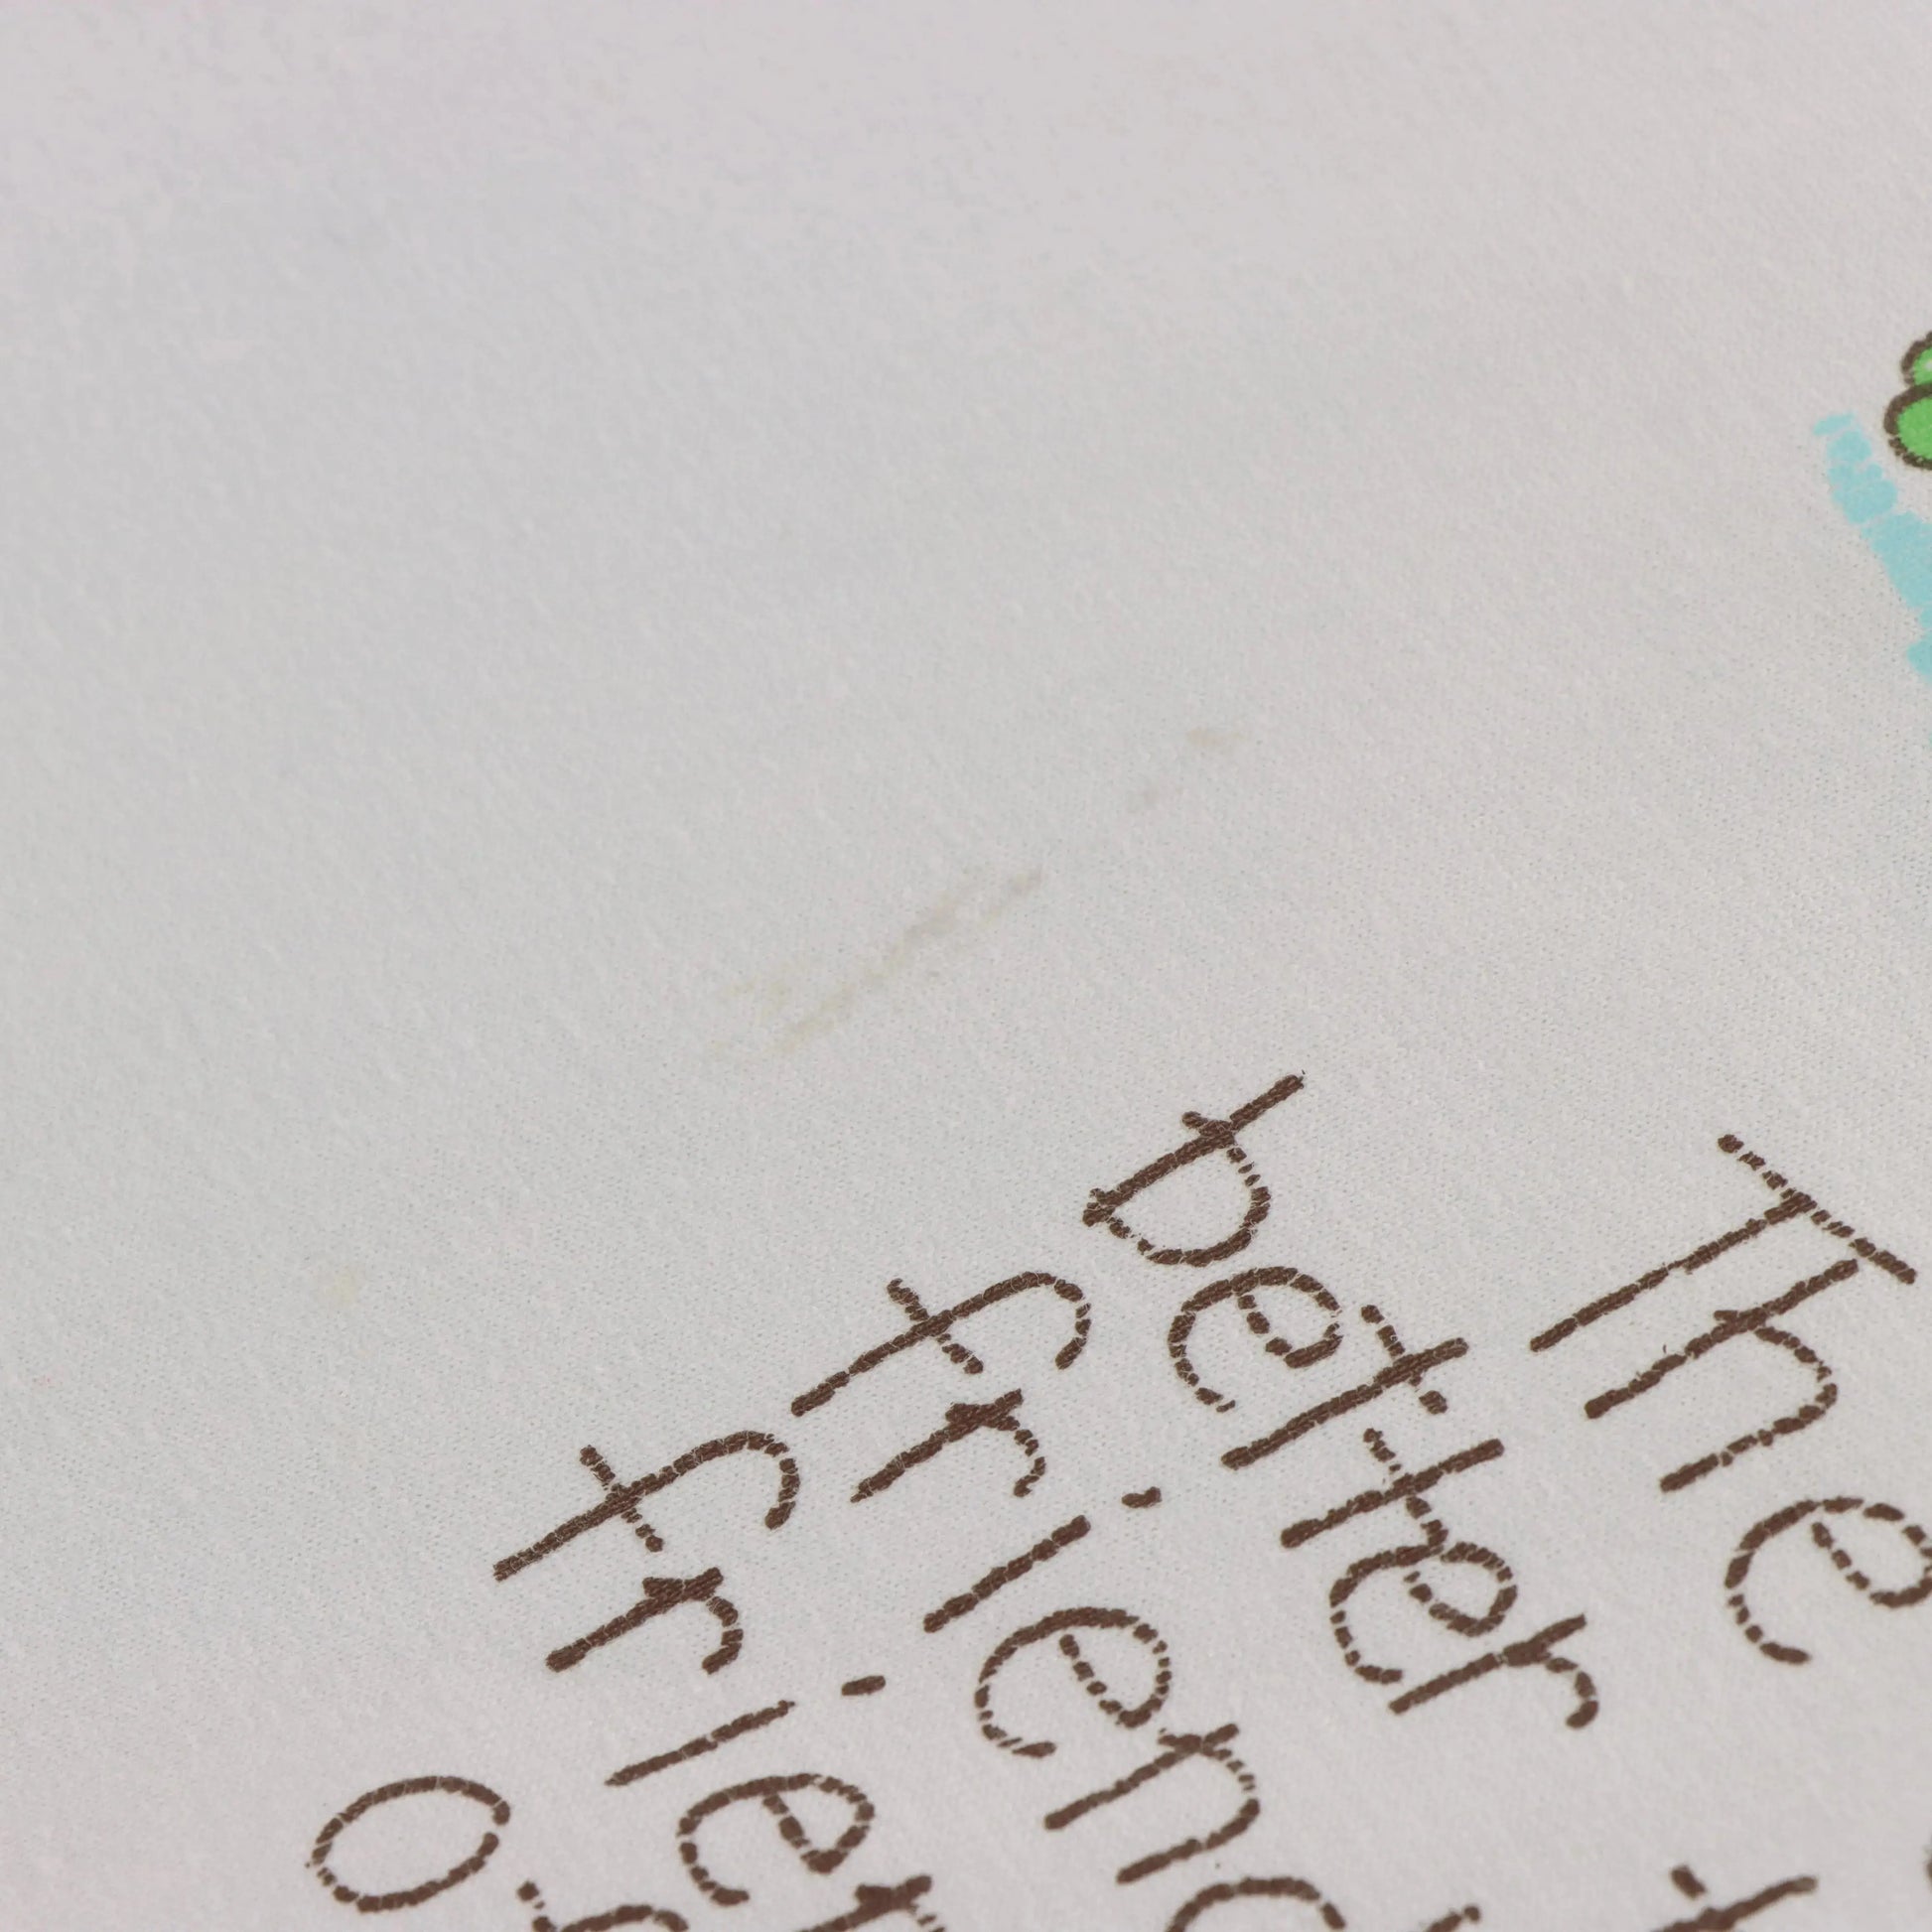 The
better
frien
frie
o